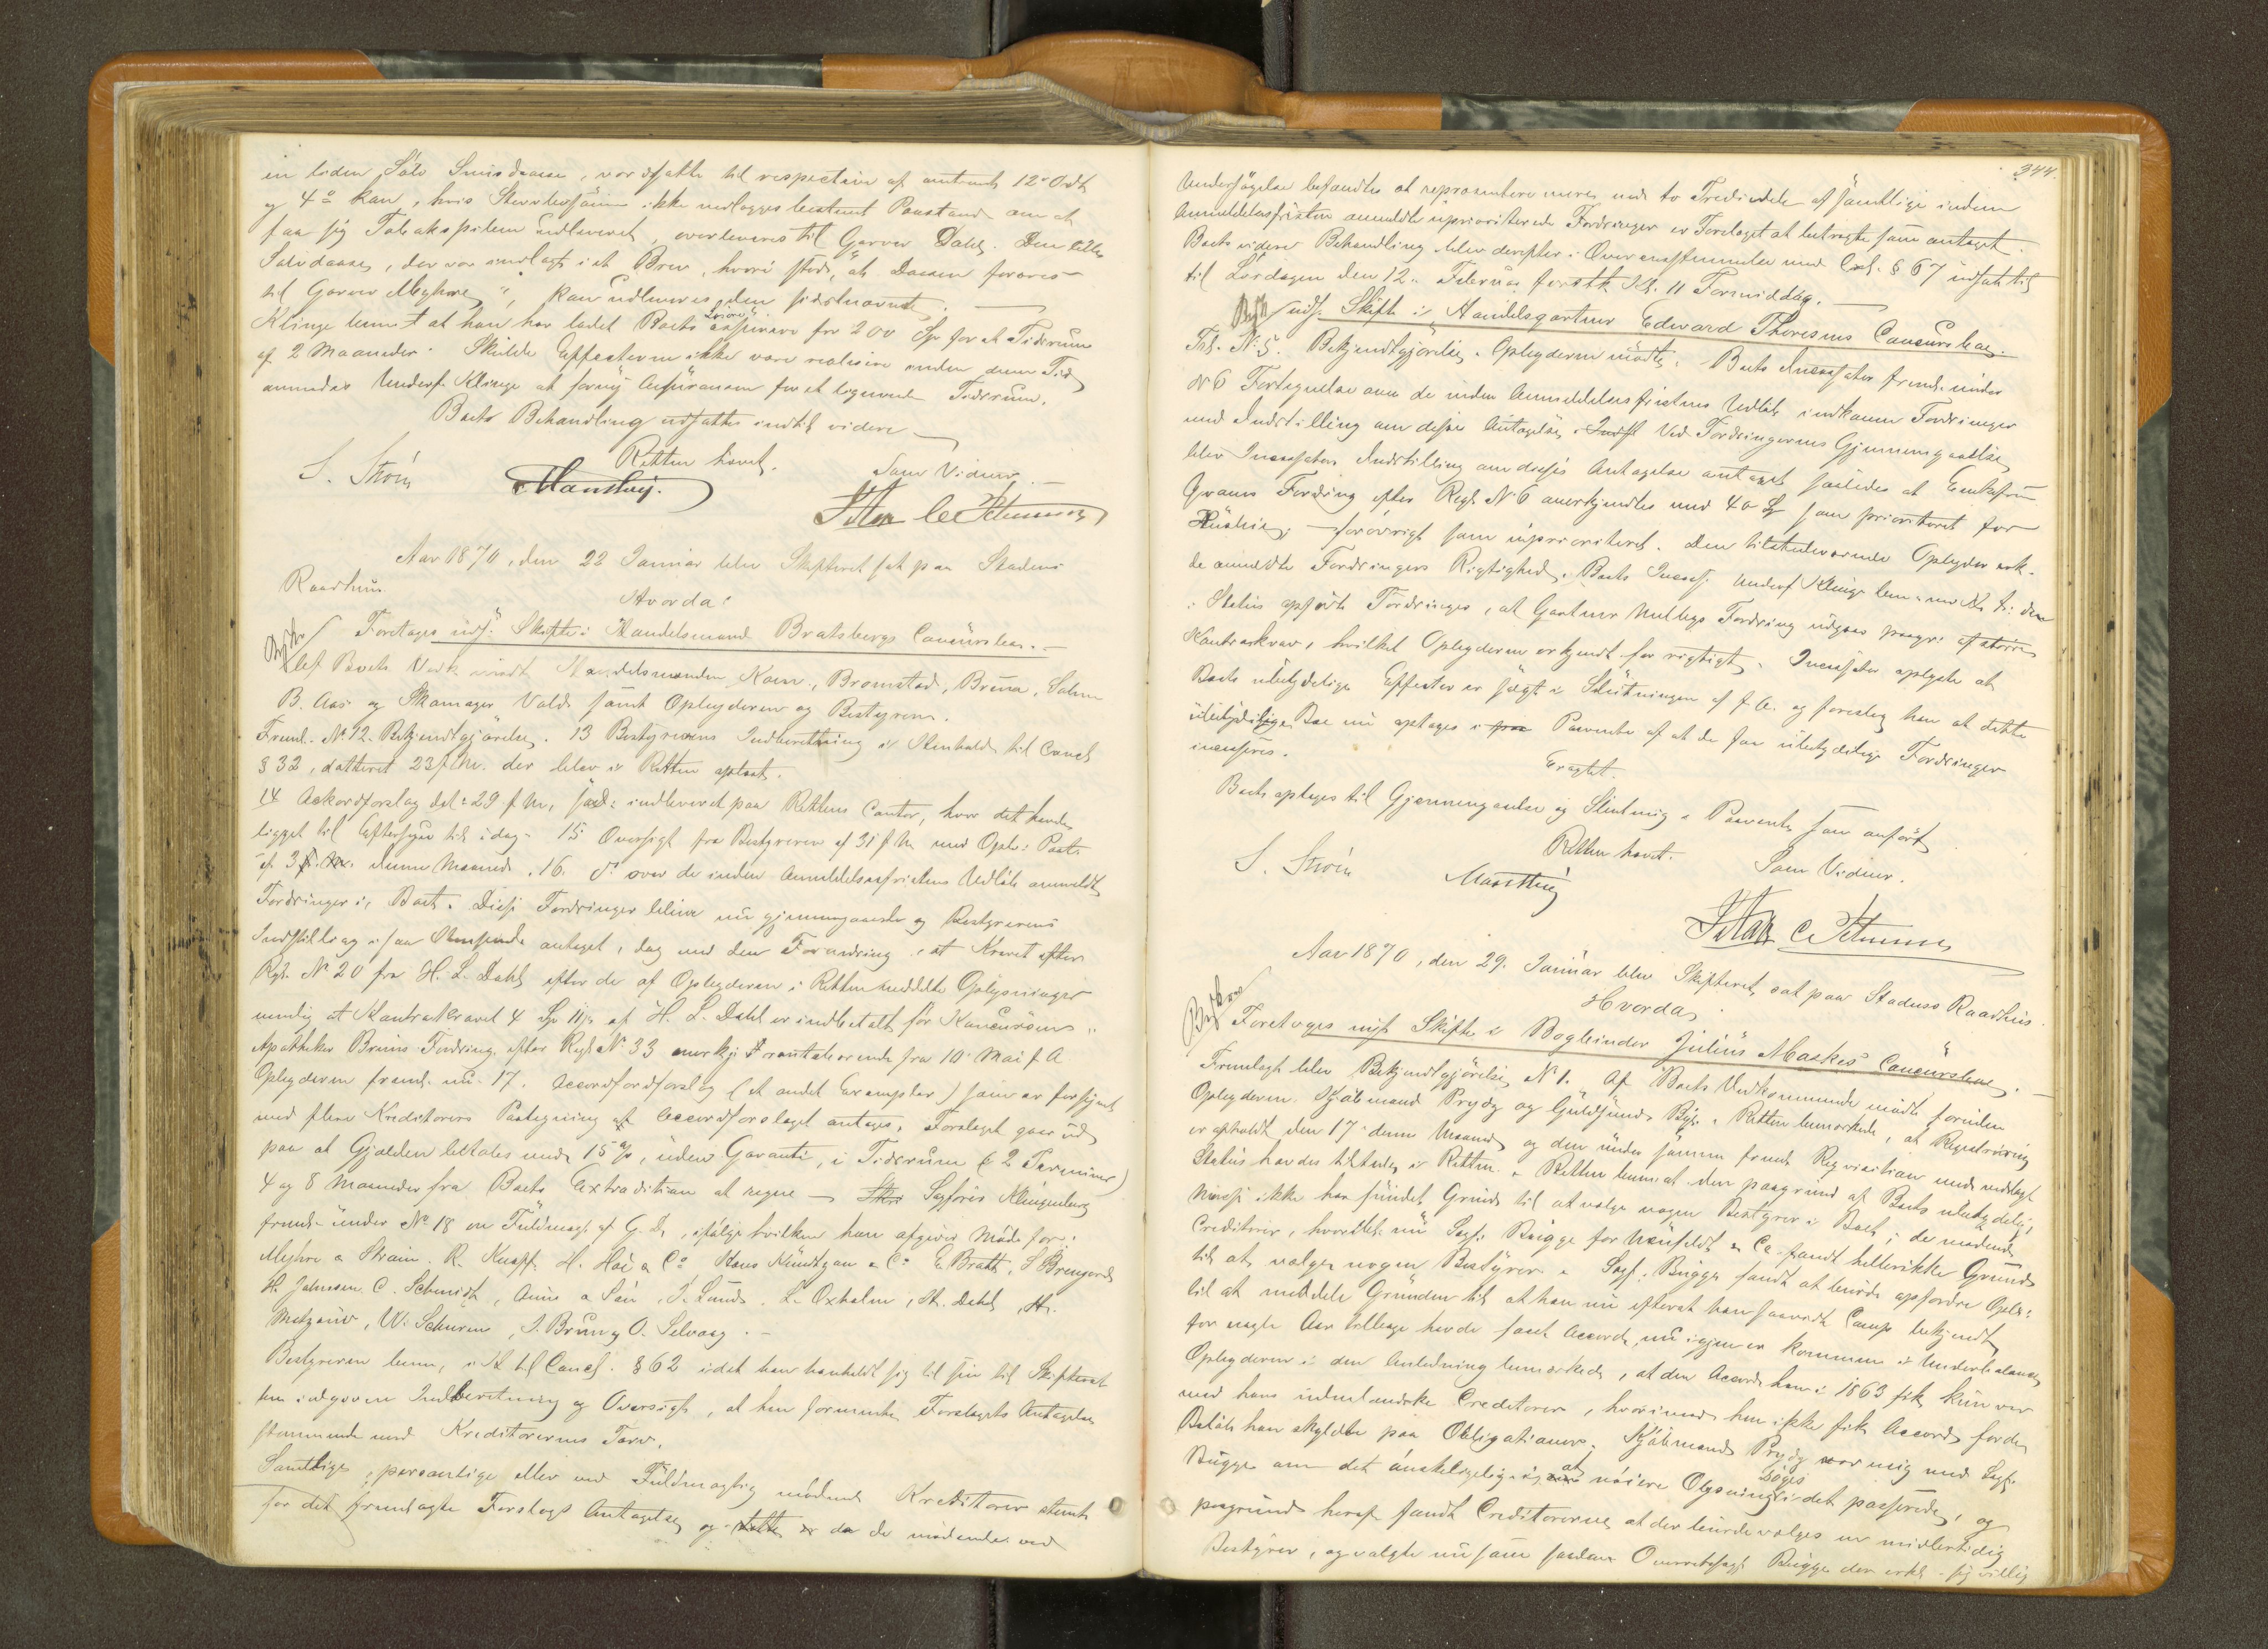 en liden Sølv Snusdaase, var ansatte til respective af omtrent 12 Ort
og 4 kan, hvis ikke nedlægges bestemt Paastand om at
faa sig Tobakspiben udleveret, overleveres til Garver Dahl. Den lille
Sølvdaase, der var indlagt i et Brev, hvori stod, at Daasen foræres
til Garver Myhre", kan udleveres den sidstnævnte.
Klinge bem. at han har ladet Boets Løsøre assurere for 200 Sp for et Tidsrum
af 2 Maaneder. Skulde Effecterne ikke være realisere inden denne Tid
anmodes Underf. Klinge at forny Assurancen for et lignende Tidsrum.
Boets Behandling udsattes indtil videre
Retten hævet.
S. Strøm Som Vidner.
Aar 1870, den 22 Januar blev Skifteret sat paa Stadens
Raadhuus
Hvorda:
Foretages uds. Skifte i Handelsmand Bratsbergs Concursboe.
Af Boets Vedk. mødt Handelsmændene Koen, Bromstad, Bruna,
B. Aas og Skomager Vold samt Opbyderen og Bestyreren.
Freml. No 12. Bekjendtgjørelse. 13 Bestyrerens Indberetning i Henhold til Concl
§ 32, datteret 23 f. M. der blev i Retten oplæst.
14 Akkordforslag dat: 29 f. M, indleveret paa Rettens Contor, hvor det havde
ligget til Eftersyn til idag. 15 Oversigt fra Bestyreren af 31 f M med Opb: Paat.
af 3 denne Maaned. 16. do over de inden Anmeldelsesfristens Udløb anmeldte
Fordringer i Boet. Disse Fordringer bleve nu gjennemgaaede og Bestyrerens
Indstilling i saa Henseende antaget, dog med den Forandring, at Kravet efter
Rgl. No 20 fra H. L. Dahl efter de af Opbyderen i Retten meddelte Oplysninger
nemlig at Kontrakravet 4 Sp af H. L. Dahl er indbetalt før Concursens
Apotheker Bruns Fordring efter Rgl. No 33 fra 10 Mai f A
Opbyderen freml. nu 17. Accordforslag (et andet Exemplar) som er forsynet
med flere Kreditorers Paategning at Accordforslaget antages. Forslaget gaar ud
paa at Gjælden betales med 15 %, uden Garanti, i Tidsrum (2 Terminer)
4 og 8 Maaneder fra Boets Extradition at regne — Sagfører Klingenberg
freml. under No 18 en Fuldmagt af G. D., ifølge hvilken han afgiver Møde for:
Myhre & Strøm. R. Knoff. H. Høe & Co Hans Kundtzon & Co E. Bratt,
H. Johnsen. C. Schmidt, Aune & Søn, J. Lund. L. Oxholm, H. Dahl, H.
W. Schuren, J. Brun og O. Selvaag.
Bestyreren bem, i H til Concl. § 62 idet han henholdt sig til sin til Skifteret
indgivne Indberetning og Oversigt, at han formente, Forslagets Antagelse
stemmende med Kreditorernes Tarv.
Samtlige, personlige eller ved Fuldmægtig mødende Kreditorer stemte
for det fremlagte Forslags Antagelse, og da de mødende ved
344.
Undersøgelse befandtes at repræsentere mere end to Trediedele af samtlige inden
Anmeldelsesfristen anmeldte uprioriterede Fordringer er Forslaget at betragte som antaget.
Boets videre Behandling blev derefter i Overensstemmelse med Ccl. § 67 udsat til
til Lørdagen den 12. Februar førstk Kl. 11 Formiddag.
uds. Skifte i Handelsgartner Edward Thoresens Concursboe.
Frl. No 5. Bekjendtgjørelse. Opbyderen mødte. Boets Incassator freml. under
No 6 Fortegnelse over de inden Anmeldelsesfristens Udløb indkomne Fordringer
med Indstilling om disses Antagelse. Ved Fordringernes Gjennemgaaelse
blev Incassators Indstilling om disses Antagelse antaget saaledes at
Fordring efter Regl. No 6 anerkjendtes med 40 Sp som prioriteret for
Huusleie, forøvrigt som uprioriteret. Den tilstedeværende Opbyder erk.
de anmeldte Fordringers Rigtighed. Boets Incass. Underf. Klinge bem.
i Status opførte Fordringer, at Gartner Fordring udgaar paagr: af større
Kontrakrav, hvilket Opbyderen erkjendt for rigtigt. Incassator oplyste at
Boets ubetydelige Effecter er solgt i Slutningen af f. A. og foreslog han at dette
ubetydelige Boe nu optages i Paavente af at de faa ubetydelige Fordringer
incasseres.
Eragtet.
Boets optages til Gjennemgaaelse og Slutning i Paavente som anført
Retten hævet.
S. Strøm Som Vidner.
Aar 1870, den 29. Januar blev Skifteret sat paa Stadens Raadhuus.
Hvorda
Foretoges nyt Skifte i Bogbinder Julius Maskes Concursboe.
Fremlagt blev Bekjendtgjørelse No 1. Af Boets Vedkommende mødte foruden
Opbyderen Kjøbmand Prydz og Guldsmed Retten bemærkede, at Registrering
er afholdt den 17 denne Maaned og den under samme freml. Reqvisition med vedlagt
Status havdes tilstede i Retten. Retten bem. at den paagrund af Boets ubetydelig
Masse ikke har fundet Grund til at vælge nogen Bestyrer i Boet; de mødende
Creditorer, hvoriblt. nu Sagf. Bugge for & Co. fandt hellerikke Grund
til at vælge nogen Bestyrer. Sagf. Bugge fandt at burde opfordre Opb:
til at meddele Grunden til at han nu efterat han saavidt Comp. bekjendt
for nogle Aar tilbage havde faaet Accord, nu igjen er kommen i Underbalance
Opbyderen i den Anledning bemærkede, at den Accord han i 1863 fik kun var
med hans indenlandske Creditorer, hvorimod han ikke fik Accord for de
Beløb han skyldte paa Obligationer. Kjøbmand Prydz var enig med Sagf.
Bugge om det ønskelige i at nøiere Oplysning søges i det passerede, og
paagrund heraf fandt Creditorerne, at der burde vælges en midlertidig
Bestyrer, og valgte nu som saadan Overretssagf. Bugge der erkl. sig villig